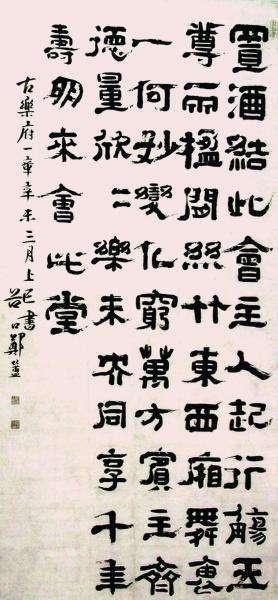 置酒結此會主人起行觴玉
尊兩楹間絲竹東西廂舞褎
一何妙變化窮萬方賓主齊
德量欣〻樂未央同享千年
壽朋來會此堂
古樂府一章辛未三月上巳書
谷口鄭簠